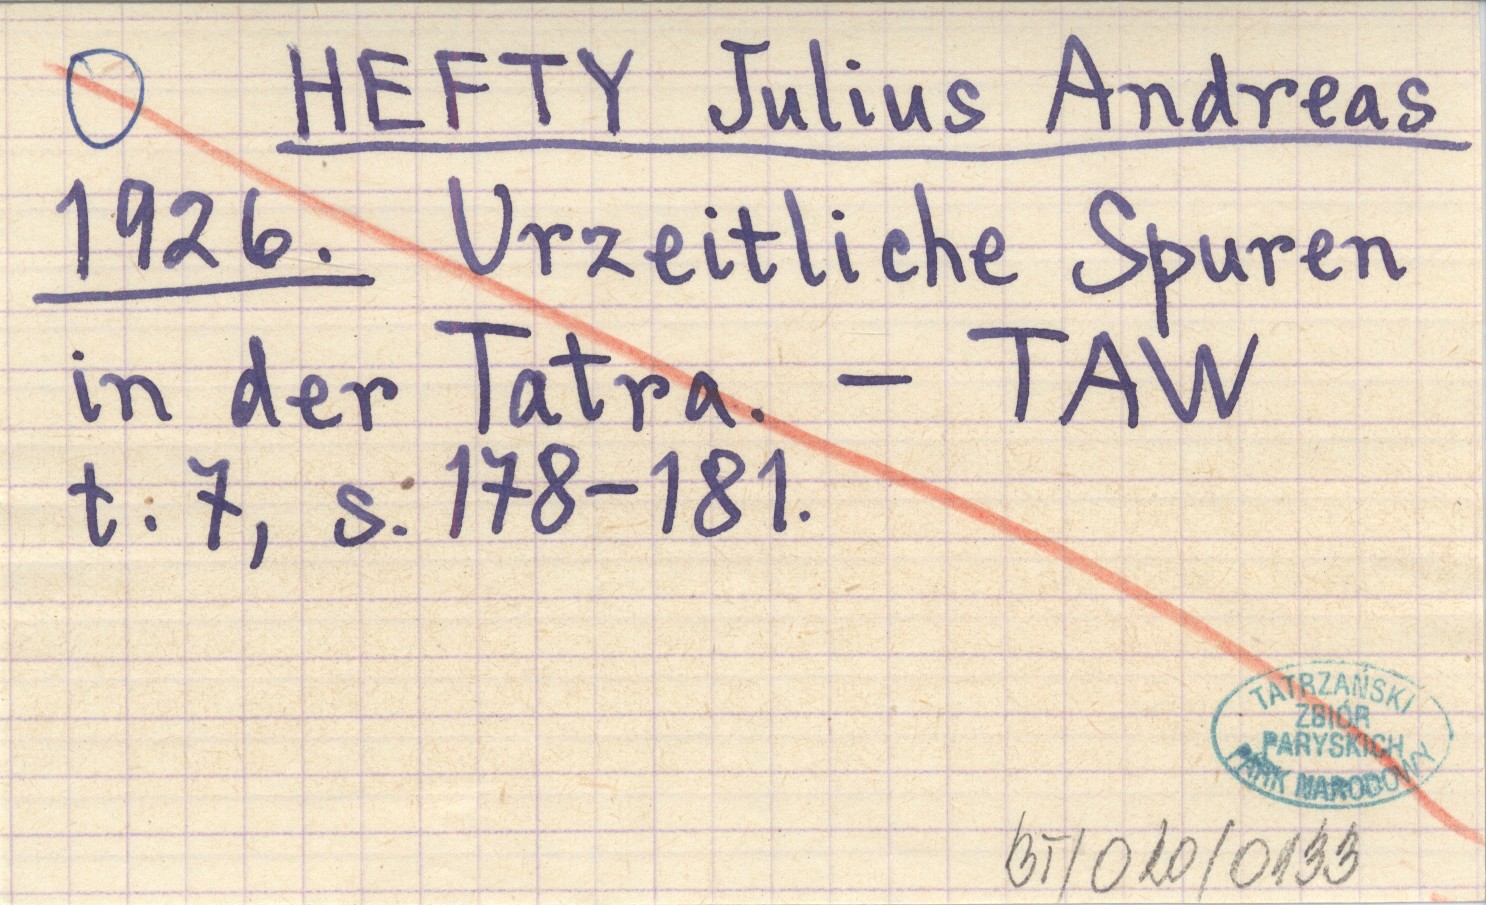 HEFTY Julius Andreas
1926. Urzeitliche Spuren
in der Tatra. – TAW
t. 7, s. 178–181.
TATRZAŃSKI
ZBIÓR
PARYSKICH
PARK NARODOWY
BT/020/0133